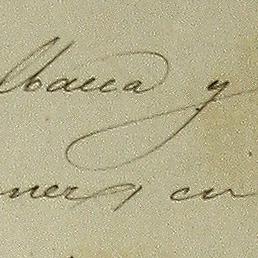 lbacea y
ner y en